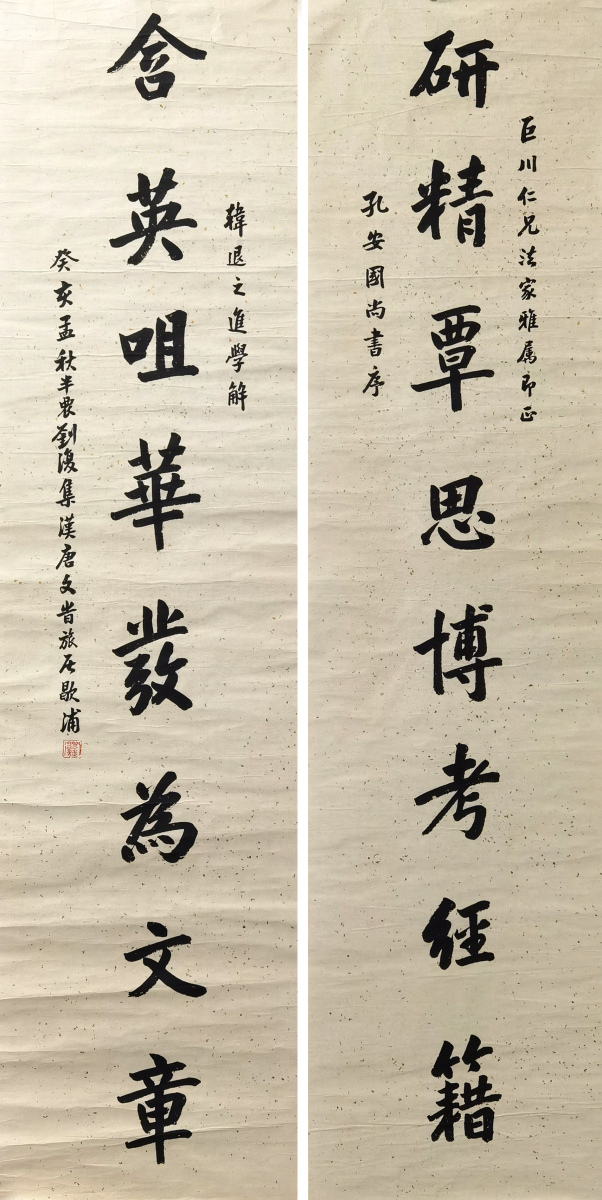 巨川仁兄法家雅属即正
研精覃思博考經籍
孔安國尚書序
韓退之進學解
含英咀華發為文章
癸亥孟秋半農劉復集漢唐文旹旅居歇浦